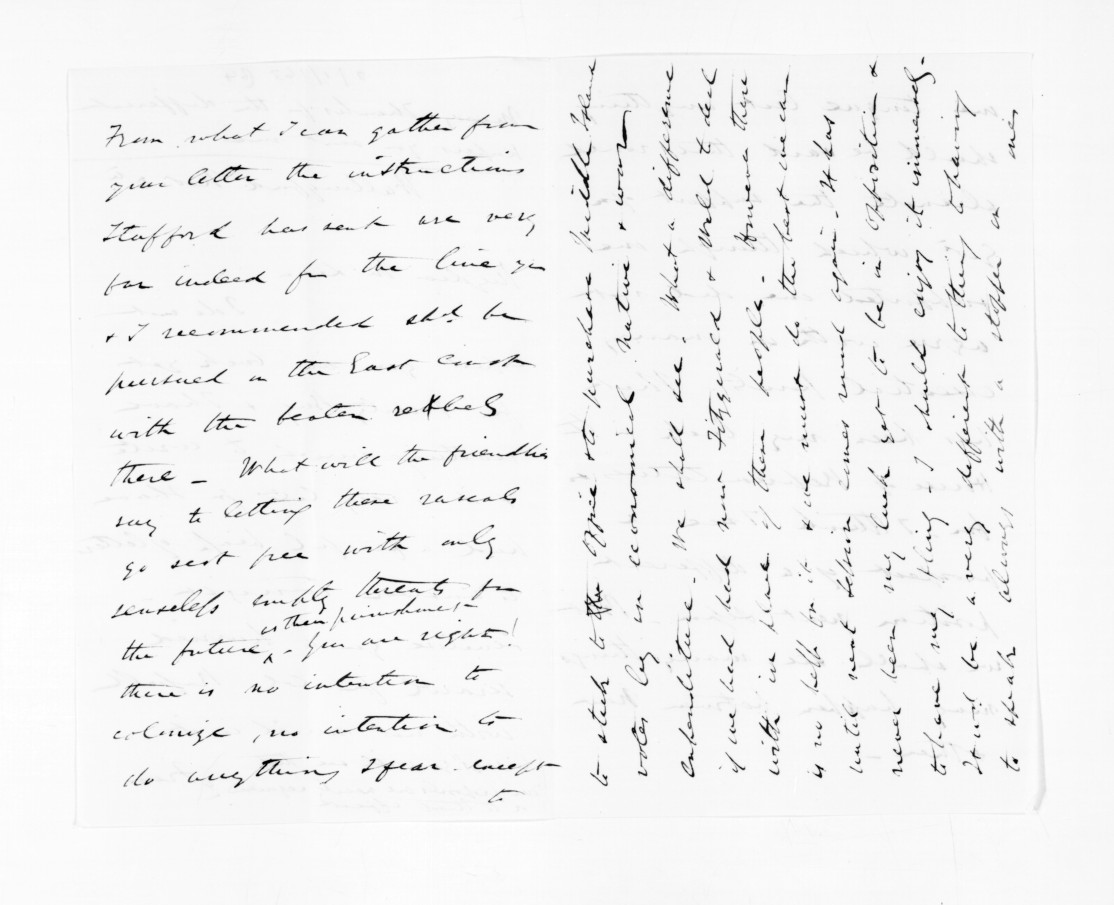 From what I can gather from
your letter the instructions
Stafford has sent are very
far indeed fm the line you
& I recommended shd. be
pursued on the East coast
with the beaten rebels
there - What will the friendlies
say to letting these rascals
go scot free with only
senseless empty threats for
the future, as their punishment - You are right!
there is no intention to
colonize, no intention to
do anything I fear except
to
to stick to office & to purchase Middle Island
votes by an economical native & war
expenditure. We shall see. What a difference
if we had had now Fitzgerald & Weld to deal
with in place of these people - However there
is no help for it & we must do the best we can
until next Session comes round again - It has
never been my luck yet to be in opposition &
to have my fling I should enjoy it immensely -
It will be a very different thing to having
to speak always with a stopper on one's